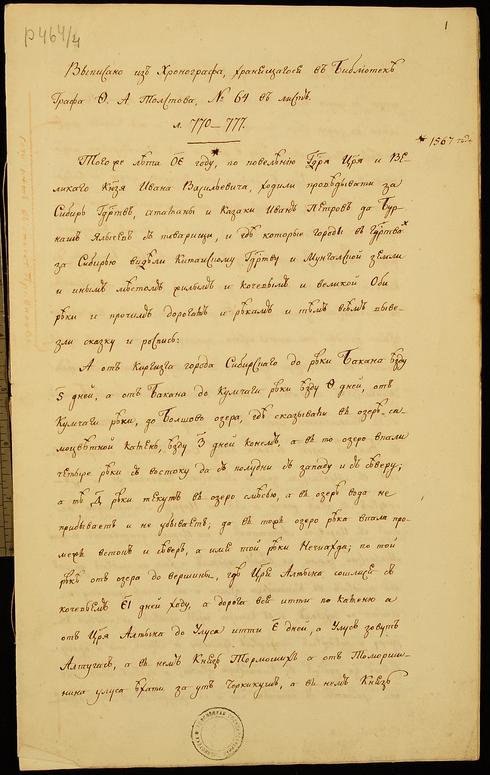 р464/4
1
Выписано изъ Хронографа, хранящагося въ Библіотекѣ
Графа Ѳ. А Толстова, № 64 въ листъ.
л. 770—777.
* 1567 года
Того же лѣта ОЕ году*, по повелѣнію Гдря Царя и Ве-
ликаго Князя Ивана Васильевича, ходили провѣдывати за
Сибирь Гдртвъ, атаманы и Казаки Иванъ Петровъ да Бур-
нашъ Ялычевъ съ товарищи, и гдѣ которые городы въ Гдртва
за Сибирью видѣли Китайскому Гдртву и Мунгалской земли
и инымъ мѣстомъ жилымъ и кочевымъ и великой Оби
рѣки и прочимъ дорогамъ и рѣкамъ и тѣмъ всѣмъ выве-
зли сказку и роспись:
А отъ Киргизга города Сибирскаго до рѣки Бакана ѣзду
Ѕ дней, а отъ Бакана до Кумчаги рѣки ѣзду Ѳ дней, отъ
Кумчаги рѣки, до Болшова озера, гдѣ сказываютъ въ озерѣ са-
моцвѣтной камень, ѣзду З дней конемъ, а въ то озеро впали
четыре рѣки съ востоку да съ полудни съ западу и съ сѣверу;
а тѣ Д рѣки текутъ въ озеро, а въ озерѣ вода не
прибываетъ и не убываетъ; да въ тожъ озеро рѣка впала про-
межъ встокъ и сѣверъ, а имя той рѣки; по той
рѣкѣ отъ озера до вершины, гдѣ Царь Алтына сошлися съ
кочевьемъ ЕІ дней ходу, а дорога все итти по каменю а
отъ Царя Алтына до Улуса итти Е дней, а Улусъ зовутъ
Алтугинъ, а въ немъ Князь Тормошинъ а отъ Томорши-
нина улуса ѣхати за утъ Чеккикушъ, а въ немъ Князь